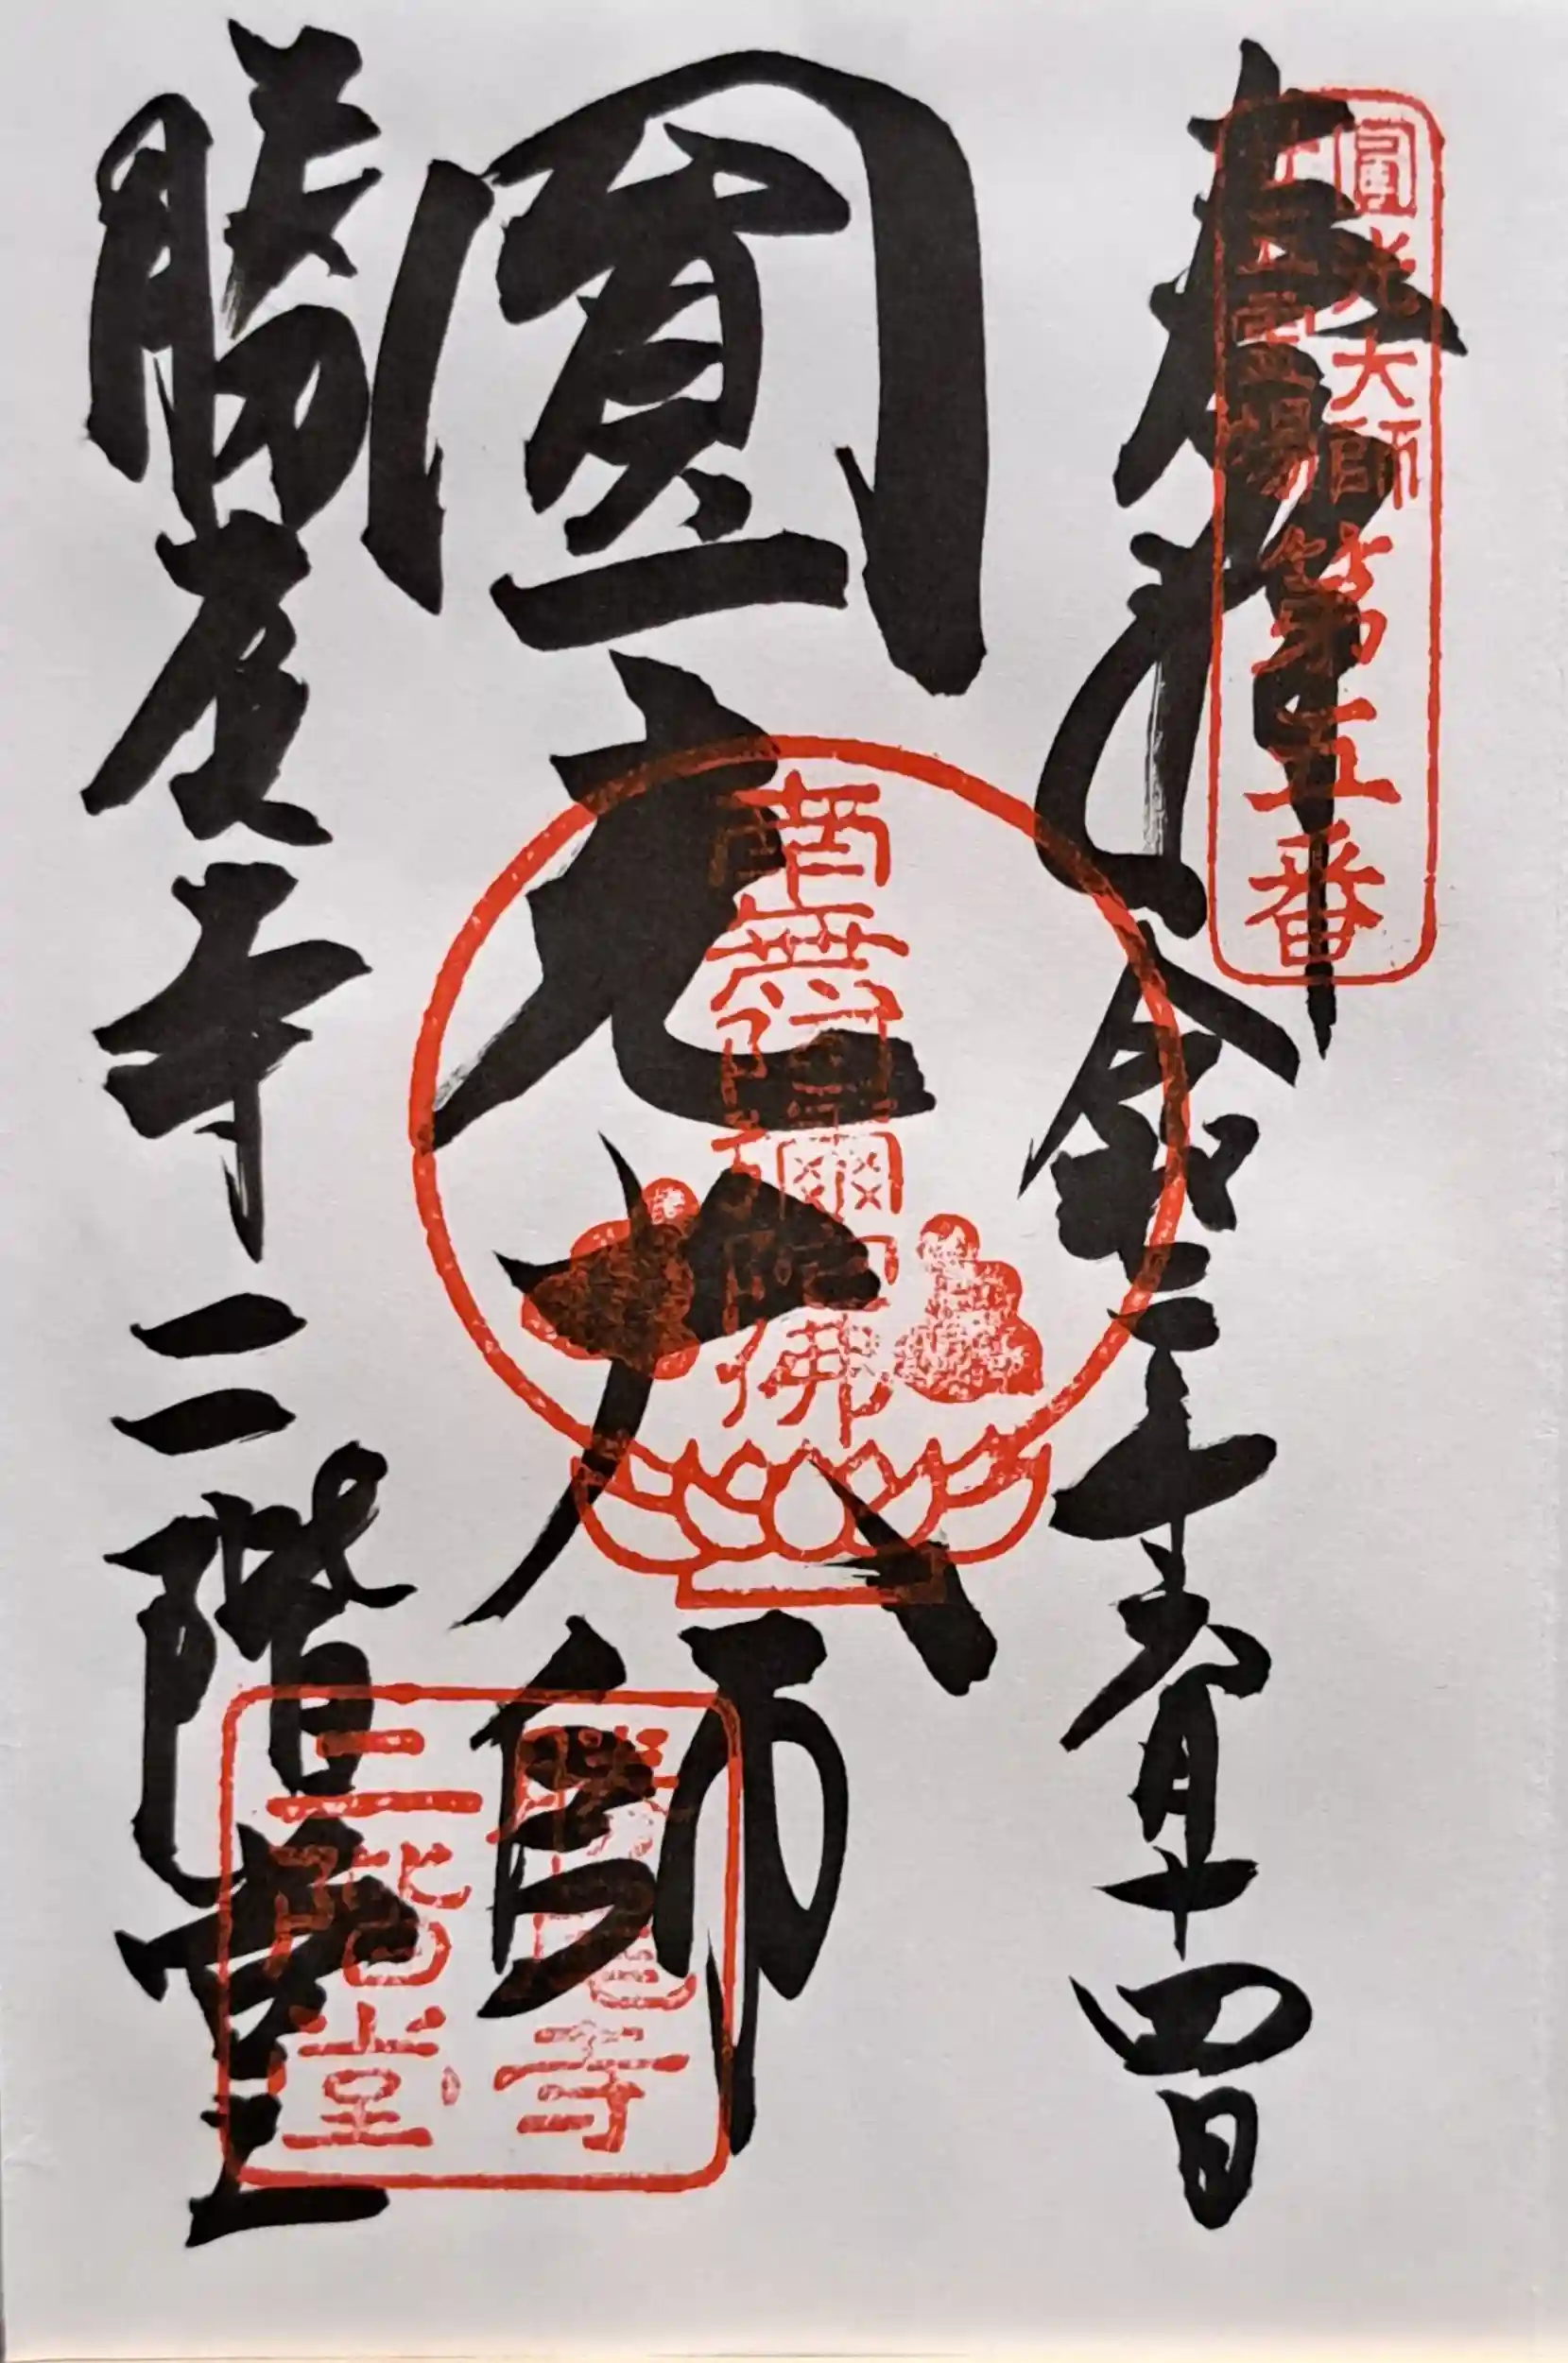 圓光大師
二十五霊場
第五番
奉拜 令和 年 月十四日
圓光大師
南無阿彌陀佛
勝尾寺二階堂
勝尾寺
二階堂